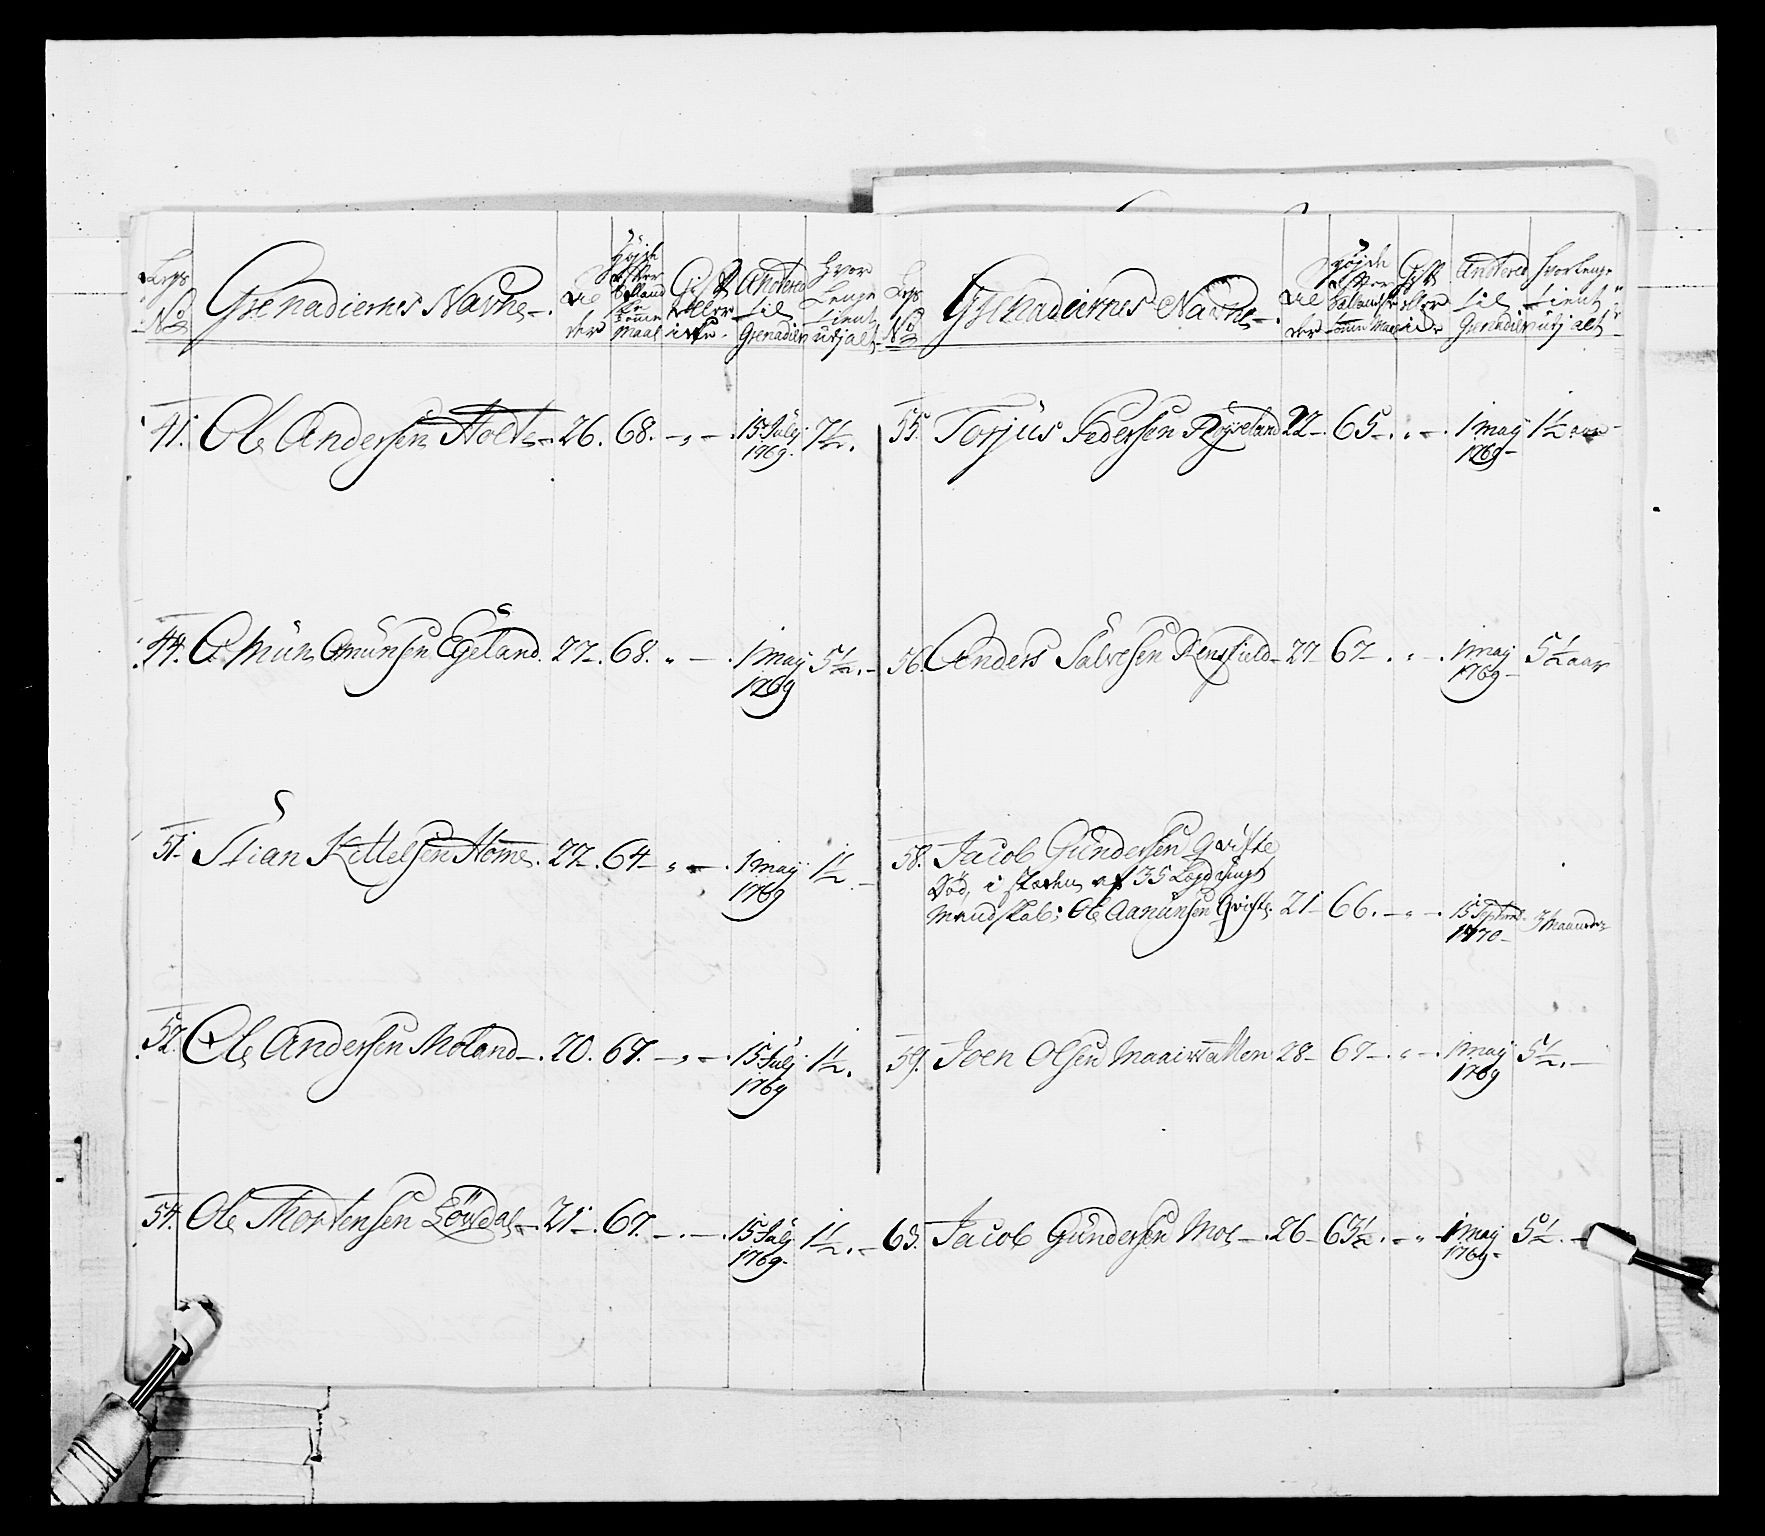 Legs No
Grenadiernes Navne
Al der
Højde efter Sælland Comme Maal
Gift eller icke
Antered til Grenadier
Hvor Lenge tient udj alt
41. Ole Andersen Holte 26. 68. 15 Julj 1769. 7½.
44. Omün Omünsen Egeland. 27. 68. 1 maij 1769 5½.
51. Stian Kittelsen Home. 27. 64 1 maij 1769 1½
52. Ole Andersen Moland 20. 67. 15 Julj 1769 1½.
54. Ole Mortensen Löwdal 21. 67. 15 Julj 1769. 1½.
Legs No
Grenadiernes Navne
Al der
Højde efter
Gift eller icke
Antered til Grenadier
Hvorlenge tient udj alt
55. Torjus Pedersen Røyseland 22 65 1 maij 1769 1½ aar
56. Anders Salvesen 27 67 1 maij 1769 5½ aar
58. Jacob Gündersen Qviste
Død, i steden af 35 Legd
Mandskab: Ole Aanünsen Qviste. 21 66. 15 Septembr 1770 3 Maaneder
59. Joen Olsen 28 67 1 maij 1769 5½.
63. Jacob Gündersen Moe 26 63½. 1 maij 1769 5½.